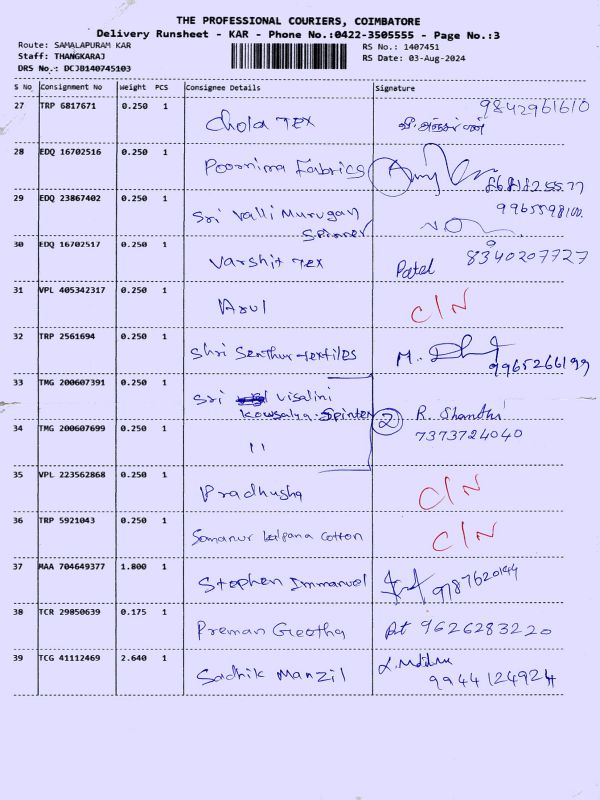 THE PROFESSIONAL COURIERS, COIMBATORE
Delivery Runsheet - KAR - Phone No.:0422-3505555 - Page No.:3
Route: SAMALAPURAM KAR
RS No.: 1407451
Staff: THANGKARAJ
RS Date: 03-Aug-2024
DRS No.: DCJ8140745103
S No Consignment No Weight PCS Consignee Details Signature
27 TRP 6817671 0.250 1 Chola Tex 9842961610
28 EDQ 16702516 0.250 1 Poornima Fabrics
29 EDQ 23867402 0.250 1 Sri Valli Murugan 9965598100.
Spinner
30 EDQ 16702517 0.250 1 Varshit Tex Patel 8340207727
31 VPL 405342317 0.250 1 Arul C/N
32 TRP 2561694 0.250 1 Shri Senthur textiles M. 9965266199
33 TMG 200607391 0.250 1 Sri Visalini
Kowsalya. Spinter 2 R. Shanthi
34 TMG 200607699 0.250 1 11 7373724040
35 VPL 223562868 0.250 1 Pradhusha C/N
36 TRP 5921043 0.250 1 Somanur kalpana cotton C/N
37 MAA 704649377 1.800 1 Stephen Immanuel 9787620144
38 TCR 29850639 0.175 1 Preman Geetha 9626283220
39 TCG 41112469 2.640 1 Sadhik Manzil
9944124924